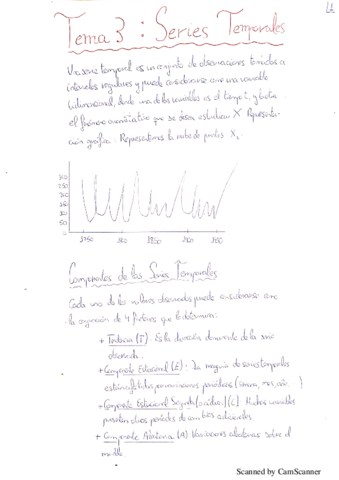 Tema 3 : Series Temporales
Una serie temporal es un conjunto de observaciones tomadas a
intervalos regulares y puede considerarse una variable
bidimensional, donde una de las variables es el tiempo t, y la otra
el fenómeno cuantitativo que se desea estudiar X. Representa-
ción gráfica: Representamos la nube de puntos X
300
250
200
150
100
50
0
1750
1850
Componentes de las Series Temporales
Cada uno de los valores observados puede considerarse como
la de 4 factores que lo determinan:
+ Tendencia (T): Es la dirección de la serie
observada.
+ Componente Estacional (E): La mayoría de series temporales
están por variaciones periódicas (semana, mes,
+ Componente Estacional Segunda (C). Muchas variables
presentan otros periodos de
+ Componente Aleatoria (A) Variaciones aleatorias sobre el
modelo
Scanned by CamScanner